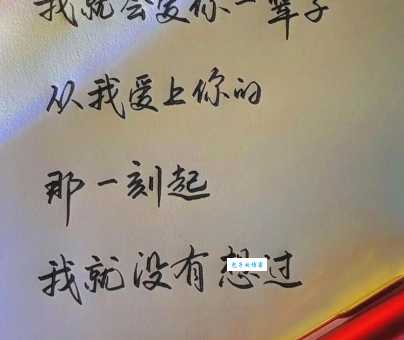 我就会爱你一辈子
从我爱上你的
那一刻起
我就没有想过